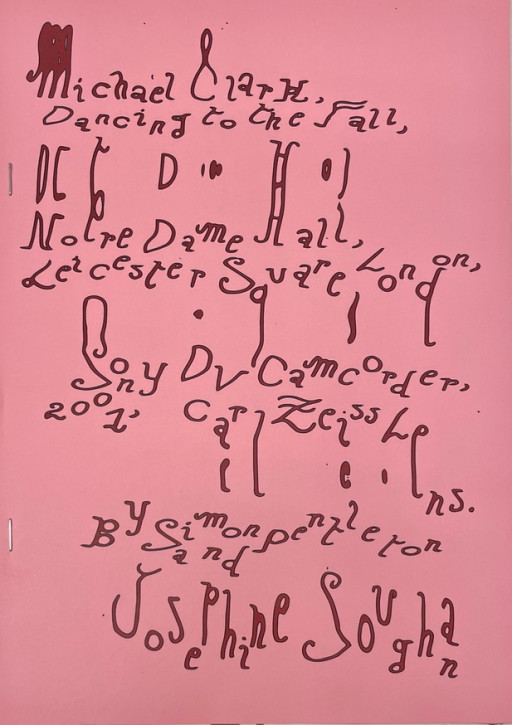 Michael Clark,
Dancing to the Fall,
Notre Dame Hall,
Leicester Square, London,
Sony DV Camcorder,
2001, Carl Zeiss Lens.
By Simon pendleton
and
Josephine Soughan